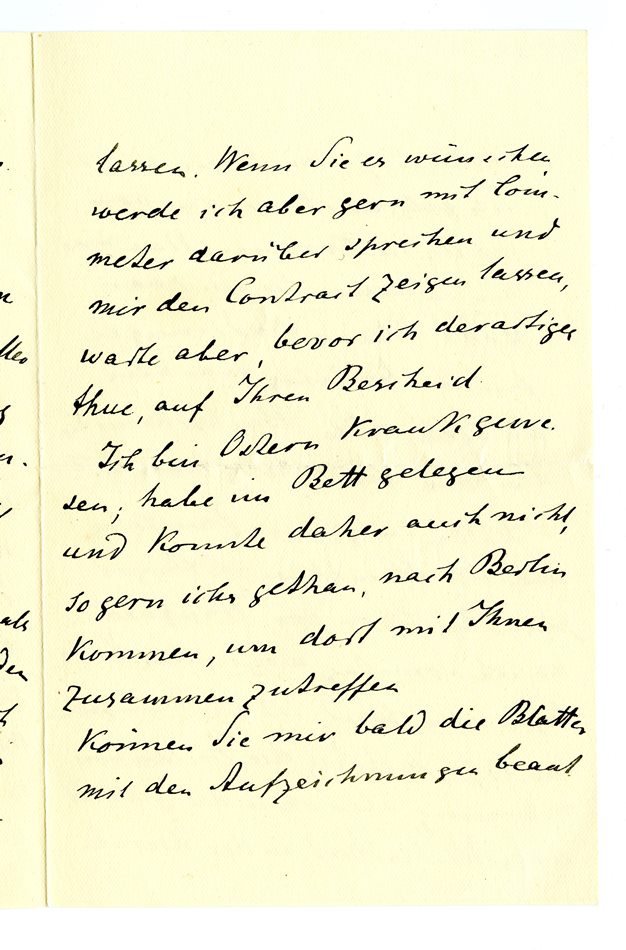 lassen. Wenn Sie es wünschen
werde ich aber gern mit Com-
meter darüber sprechen und
mir den Contract zeigen lassen,
warte aber, bevor ich derartiges
thue, auf Ihren Bescheid.
Ich bin Ostern krank gewe-
sen; habe im Bett gelegen
und konnte daher auch nicht,
so gern ichs gethan, nach Berlin
kommen, um dort mit Ihnen
zusammen zutreffen
Können Sie mir bald die Blätter
mit den Aufzeichnungen beant
n
n.
als
den